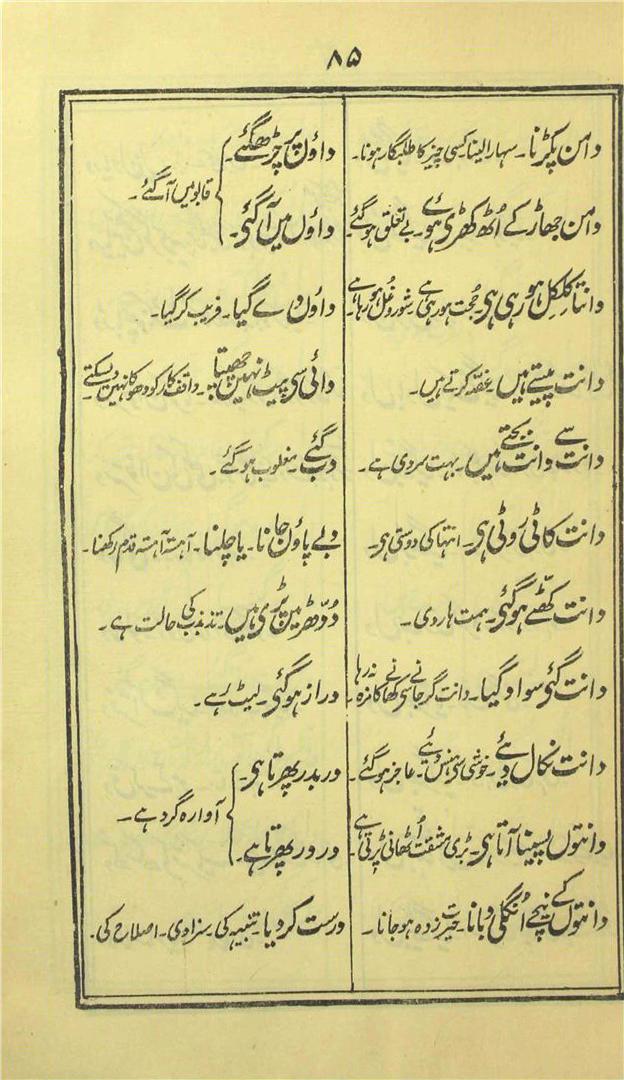 ۸۵
دامن پکڑنا۔ سہارا لینا۔ کسی چیز کا طلبگار ہونا۔
دامن جھاڑ کے اُٹھ کھڑی ہوے۔ بے تعلق ہو گئے۔
دانتا کلکل ہو رہی ہی۔ حُجت ہو رہی ہے۔ شور و غل ہو رہا ہے
دانت پیستے ہیں۔ غصّہ کرتے ہیں۔
دانت سے دانت بجتے ہیں۔ بہت سردی ہے۔
دانت کاٹی روٹی ہی۔ انتہا کی دوستی ہی۔
دانت کھٹّے ہو گئی۔ ہمت ہار دی۔
دانت گئی سواد گیا۔ دانت گر جانے سی کھانے کا مزہ نہ رہا۔
دانت نکال دیئے۔ خوشی سی ہنس دیئے۔ عاجز ہو گئے۔
دانتوں پسینا آتا ہی۔ بڑی مشقت اُٹھانی پڑتی ہے۔
دانتوں کے نیچے اُنگلی دبانا۔ حیرت زدہ ہو جانا۔
داؤں پر چڑھ گئے۔
داؤں میں آ گئی۔
قابو میں آ گئے۔
داؤں دے گیا۔ فریب کر گیا۔
دائی سی پیٹ نہیں چھپتا۔ واقف کار کو دھوکا نہیں دے سکتے
دب گئے۔ مغلوب ہو گئے۔
دبے پاؤں جانا۔ یا چلنا۔ آہستہ آہستہ قدم رکھنا۔
دُودّھڑ میں پڑی ہیں۔ تذبذب کی حالت ہے۔
دراز ہو گئی۔ لیٹ رہے۔
در بدر پھرتا ہی۔
در در پھرتا ہے۔
آوارہ گرد ہے۔
درست کر دیا۔ تنبیہ کی۔ سزا دی۔ اصلاح کی۔